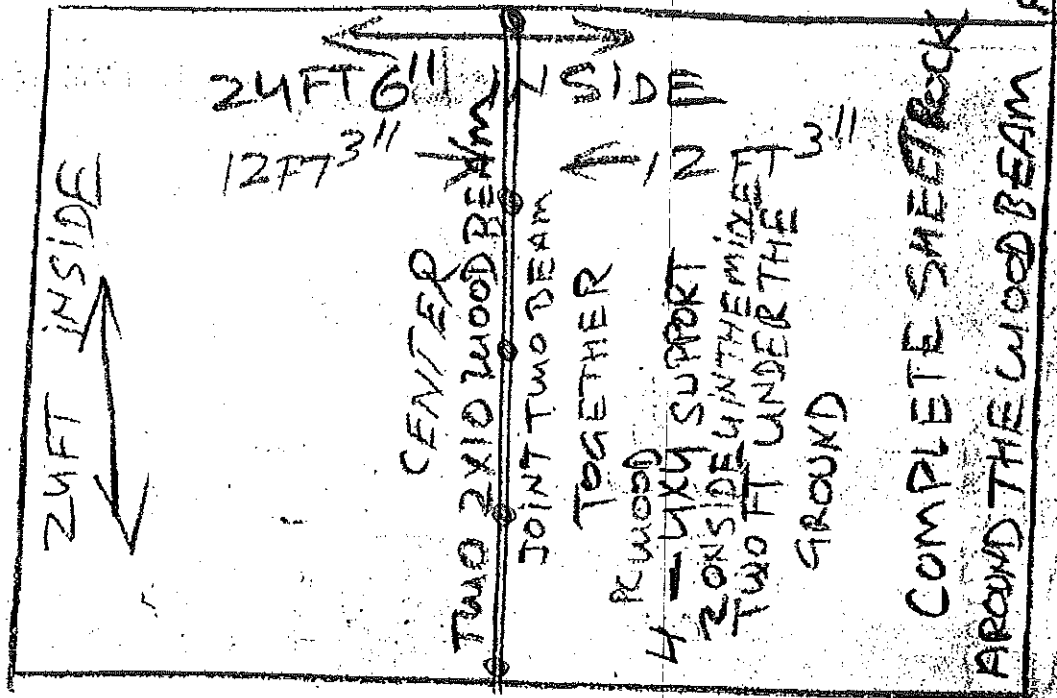 24FT INSIDE
24FT6" INSIDE
12FT3" 12FT3"
CENTER
TWO 2X10 WOOD BEAM
JOINT TWO BEAM
TOGETHER
PC WOOD
4-4X4 SUPPORT
2 ONSIDE 4 IN THE MIXET
TWO FT UNDER THE
GROUND
COMPLETE SHEETROCK
AROUND THE WOOD BEAM